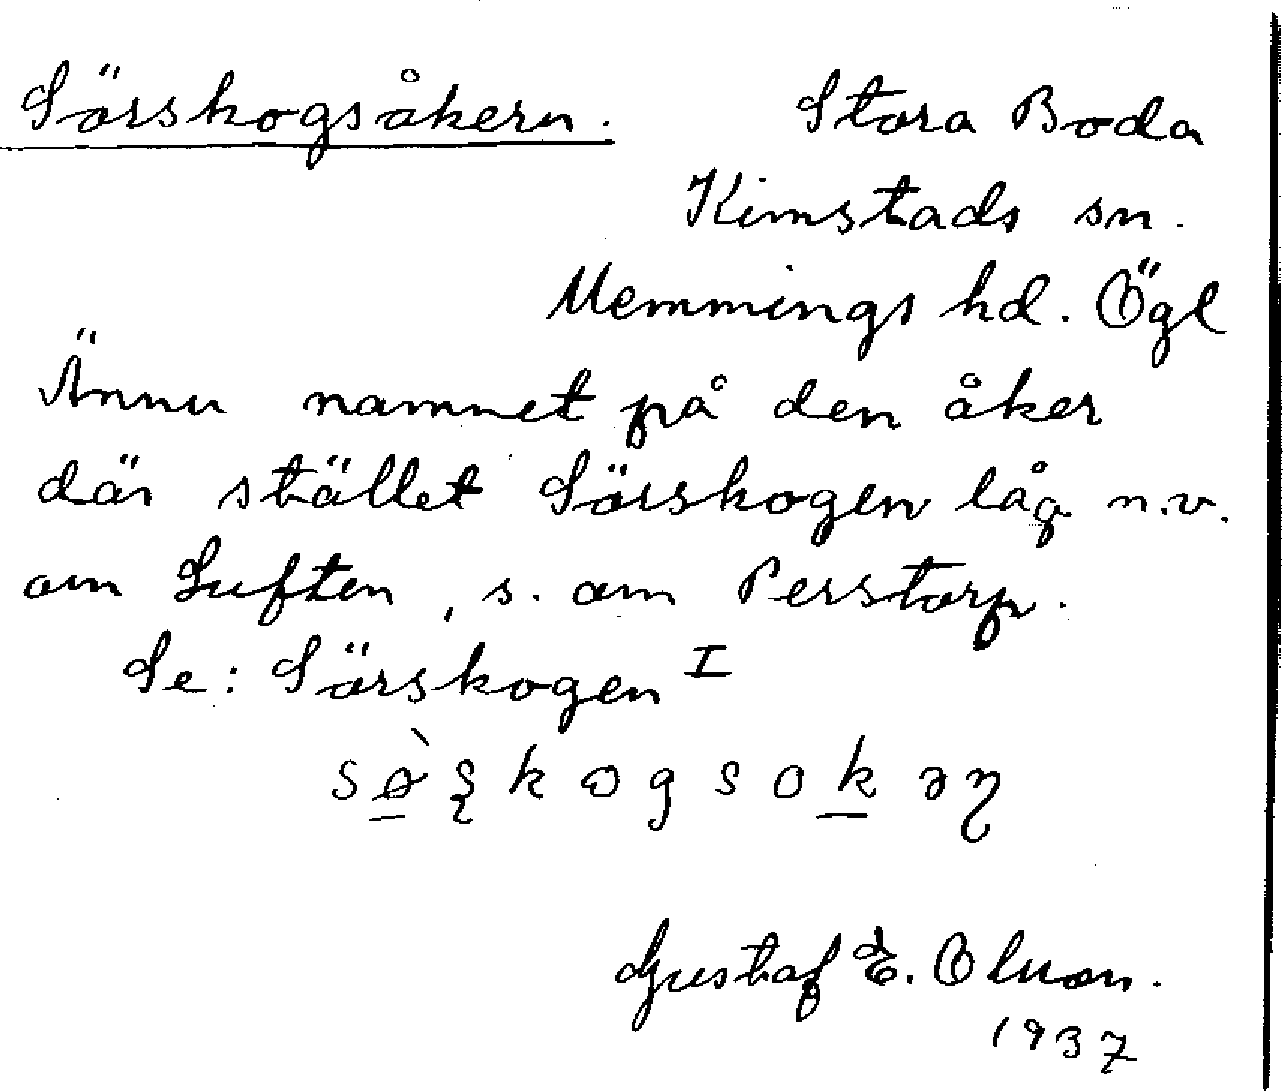 Sörskogsåkern. Stora Boda
Kimstads sn.
Memmings hd. Ögl
Ännu namnet på den åker
där stället Sörskogen låg n.v.
om Luften, s. om Perstorp.
Se: Sörskogen I
Gustaf E. Olsson.
1937